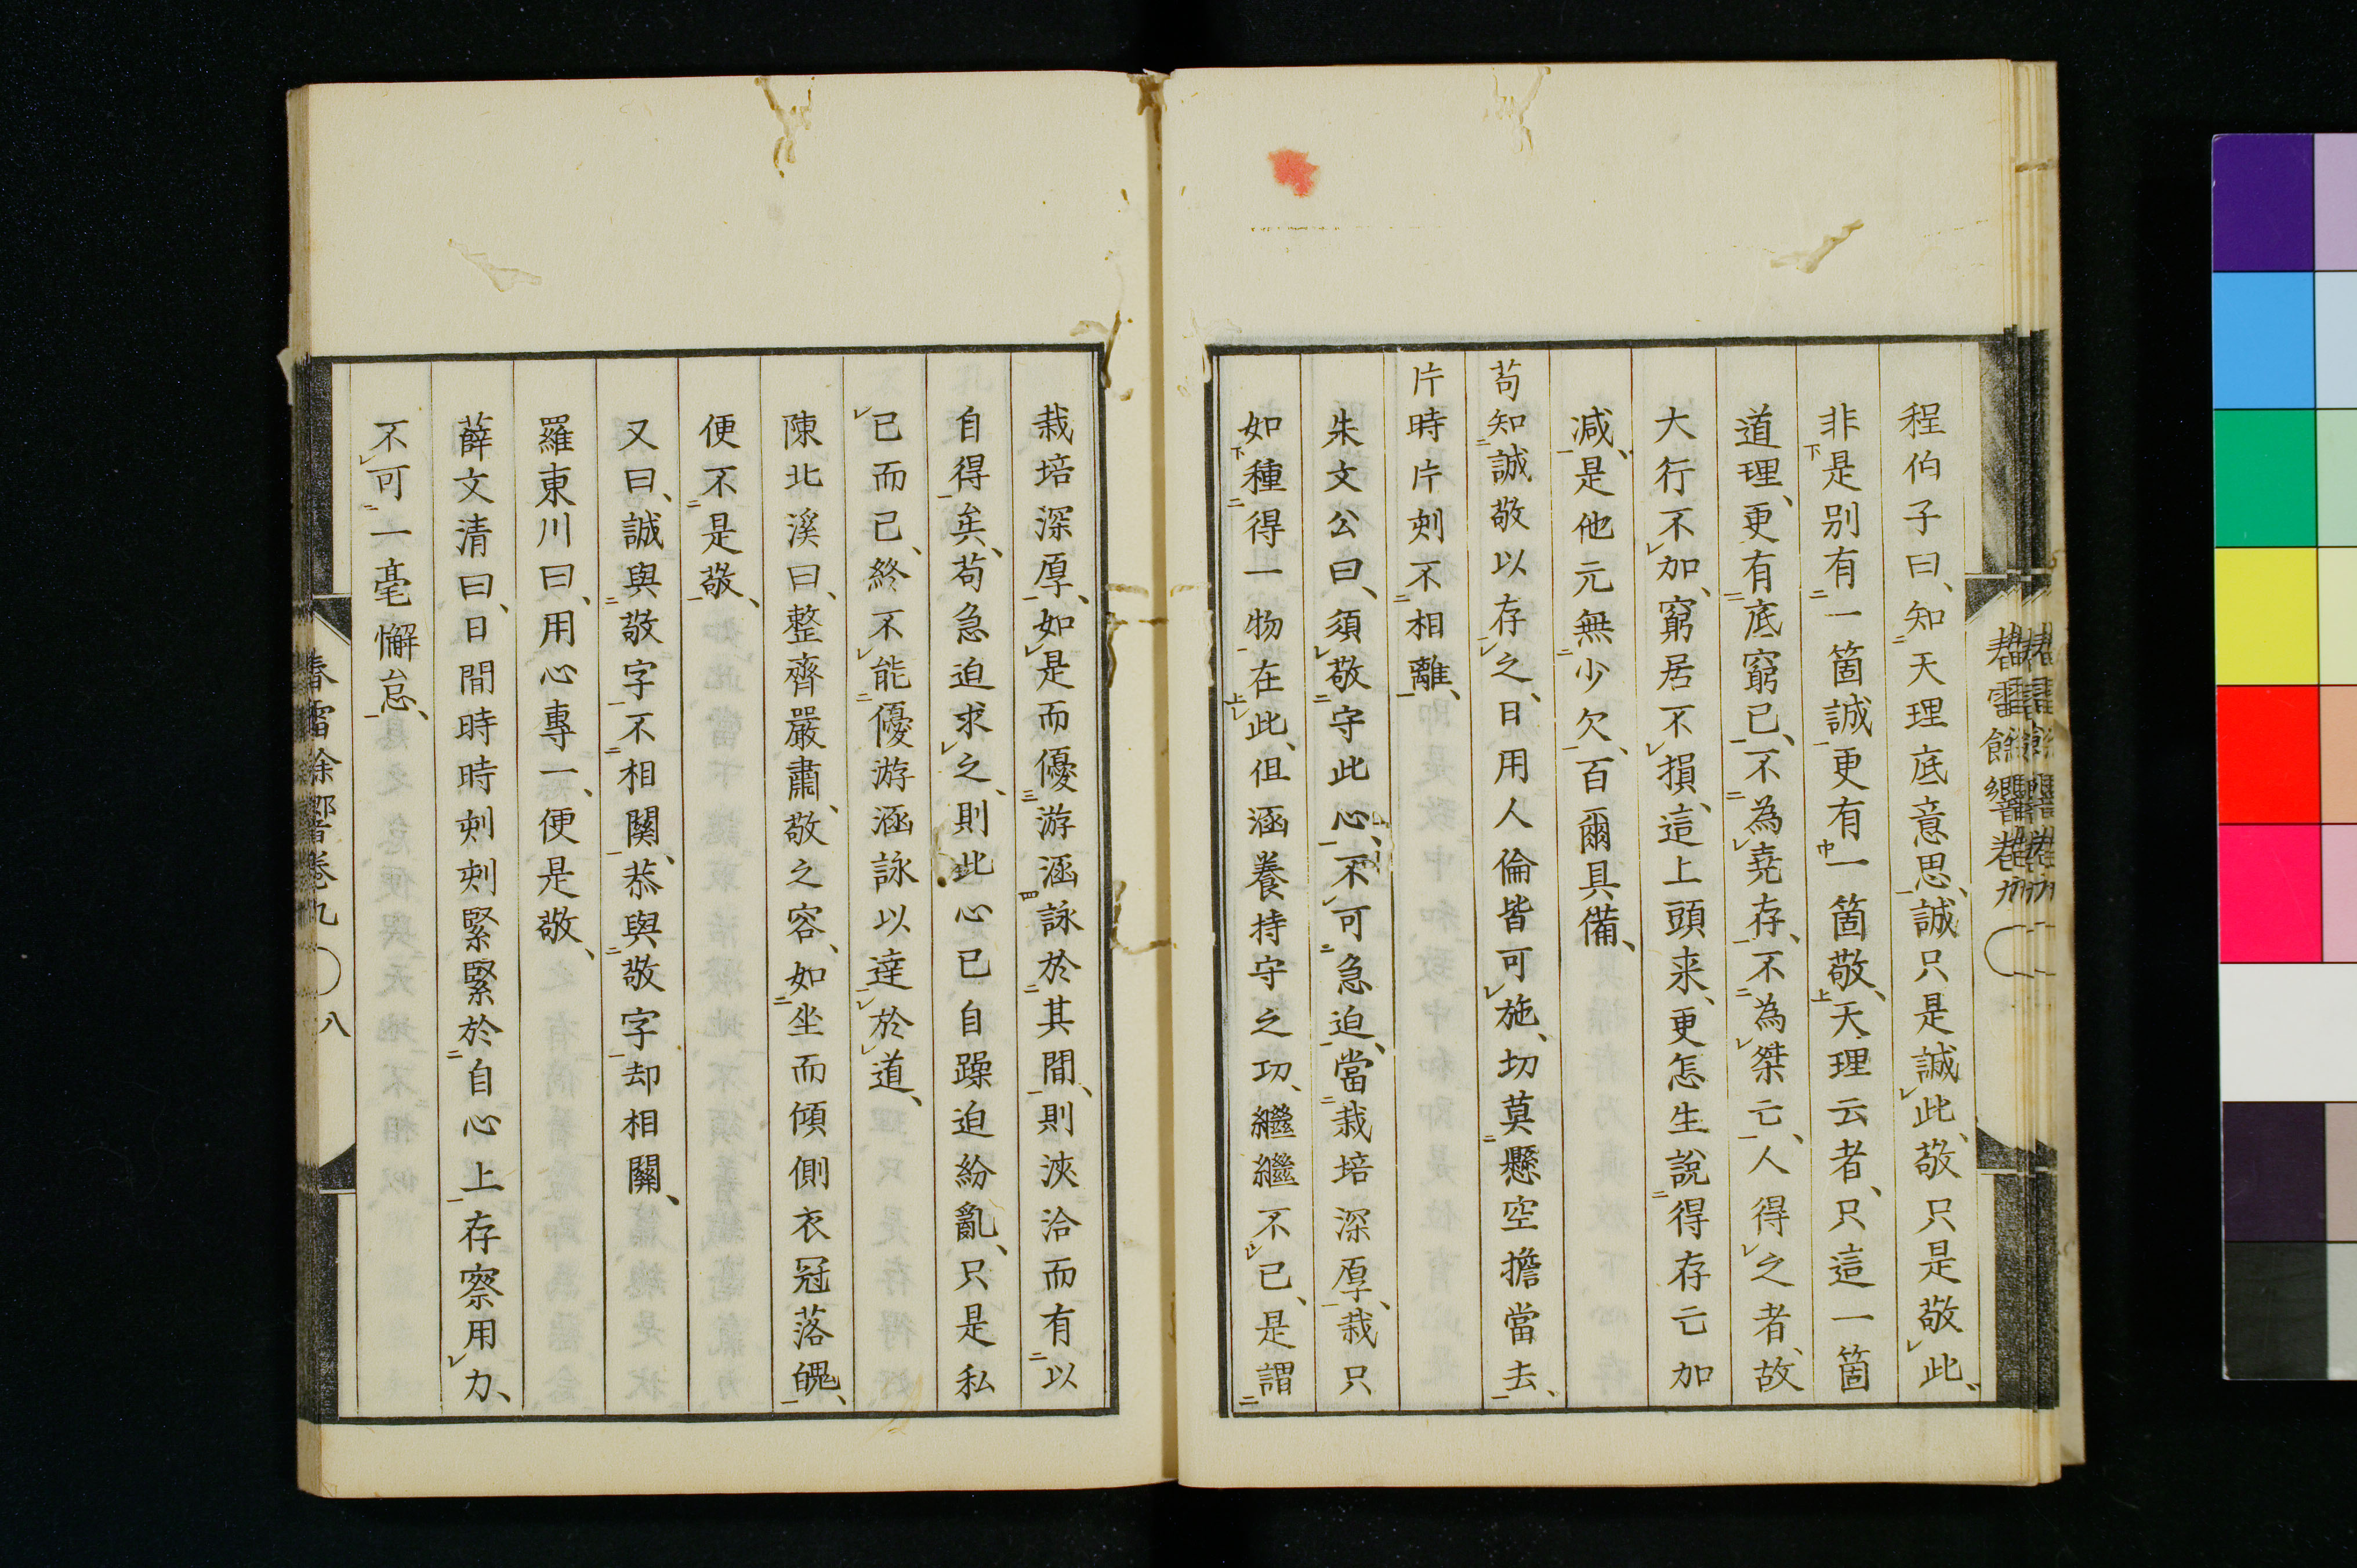 程伯子曰、知天理底意思、誠只是誠此、敬只是敬此、
非是别有一箇誠更有一箇敬、天理云者、只這一箇
道理、更有底窮已、不為堯存、不為桀亡、人得之者、故
大行不加、窮居不損、這上頭来、更怎生說得存亡加
减、是他元無少欠、百爾具備、
苟知誠敬以存之、日用人倫皆可施、切莫懸空擔當去、
片時片刻不相離、
朱文公曰、須敬守此心、不可急迫、當栽培深厚、栽只
如種得一物在此、但涵養持守之功、繼繼不已、是謂
栽培深厚、如是而優游涵詠於其間、則浹洽而有以
自得矣、苟急迫求之、則此心已自躁迫紛亂、只是私
已而已、終不能優游涵詠以達於道、
陳北溪曰、整齊嚴肅、敬之容、如坐而傾側衣冠落魄、
便不是敬、
又曰、誠與敬字不相關、恭與敬字却相關、
羅東川曰、用心專一、便是敬、
薛文清曰、日間時時刻刻緊緊於自心上存察用力、
不可一毫懈怠、
春雷餘響卷九
八